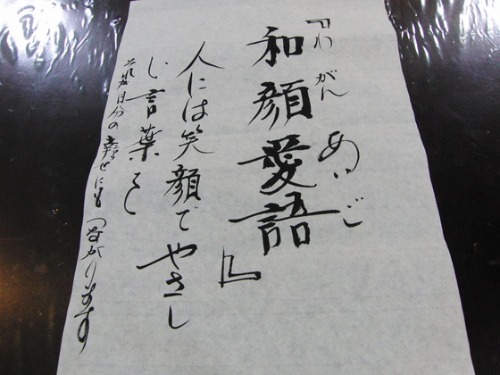 『和顔愛語』
わがん あいご
人には笑顔でやさし
い言葉を
それが自分の幸せにもつながります